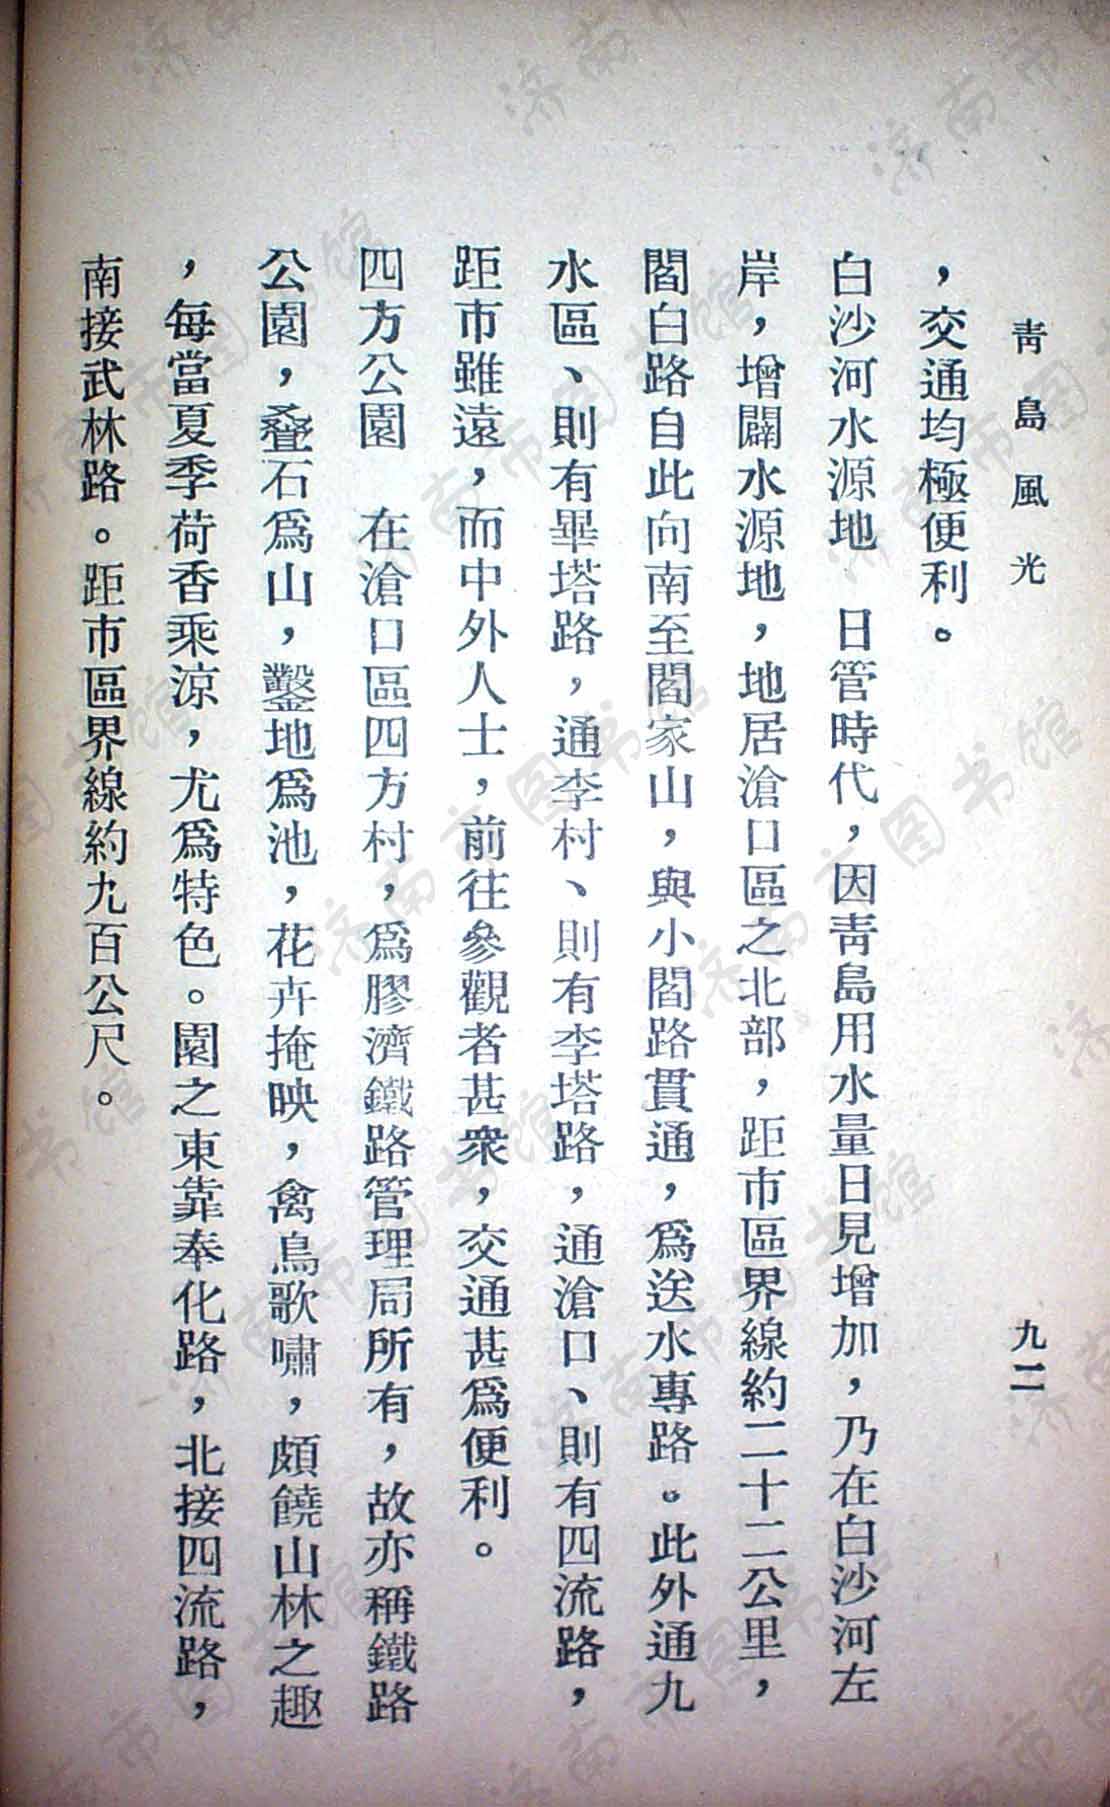 青島風光
九二
，交通均極便利。
白沙河水源地　日管時代，因青島用水量日見增加，乃在白沙河左
岸，增闢水源地，地居滄口區之北部，距市區界線約二十二公里，
閻白路自此向南至閻家山，與小閻路貫通，爲送水專路。此外通九
水區、則有畢塔路，通李村、則有李塔路，通滄口、則有四流路，
距市雖遠，而中外人士，前往參觀者甚衆，交通甚爲便利。
四方公園　在滄口區四方村，爲膠濟鐵路管理局所有，故亦稱鐵路
公園，叠石爲山，鑿地爲池，花卉掩映，禽鳥歌嘯，頗饒山林之趣
，每當夏季荷香乘涼，尤爲特色。園之東靠奉化路，北接四流路，
南接武林路。距市區界線約九百公尺。
济南市图书馆